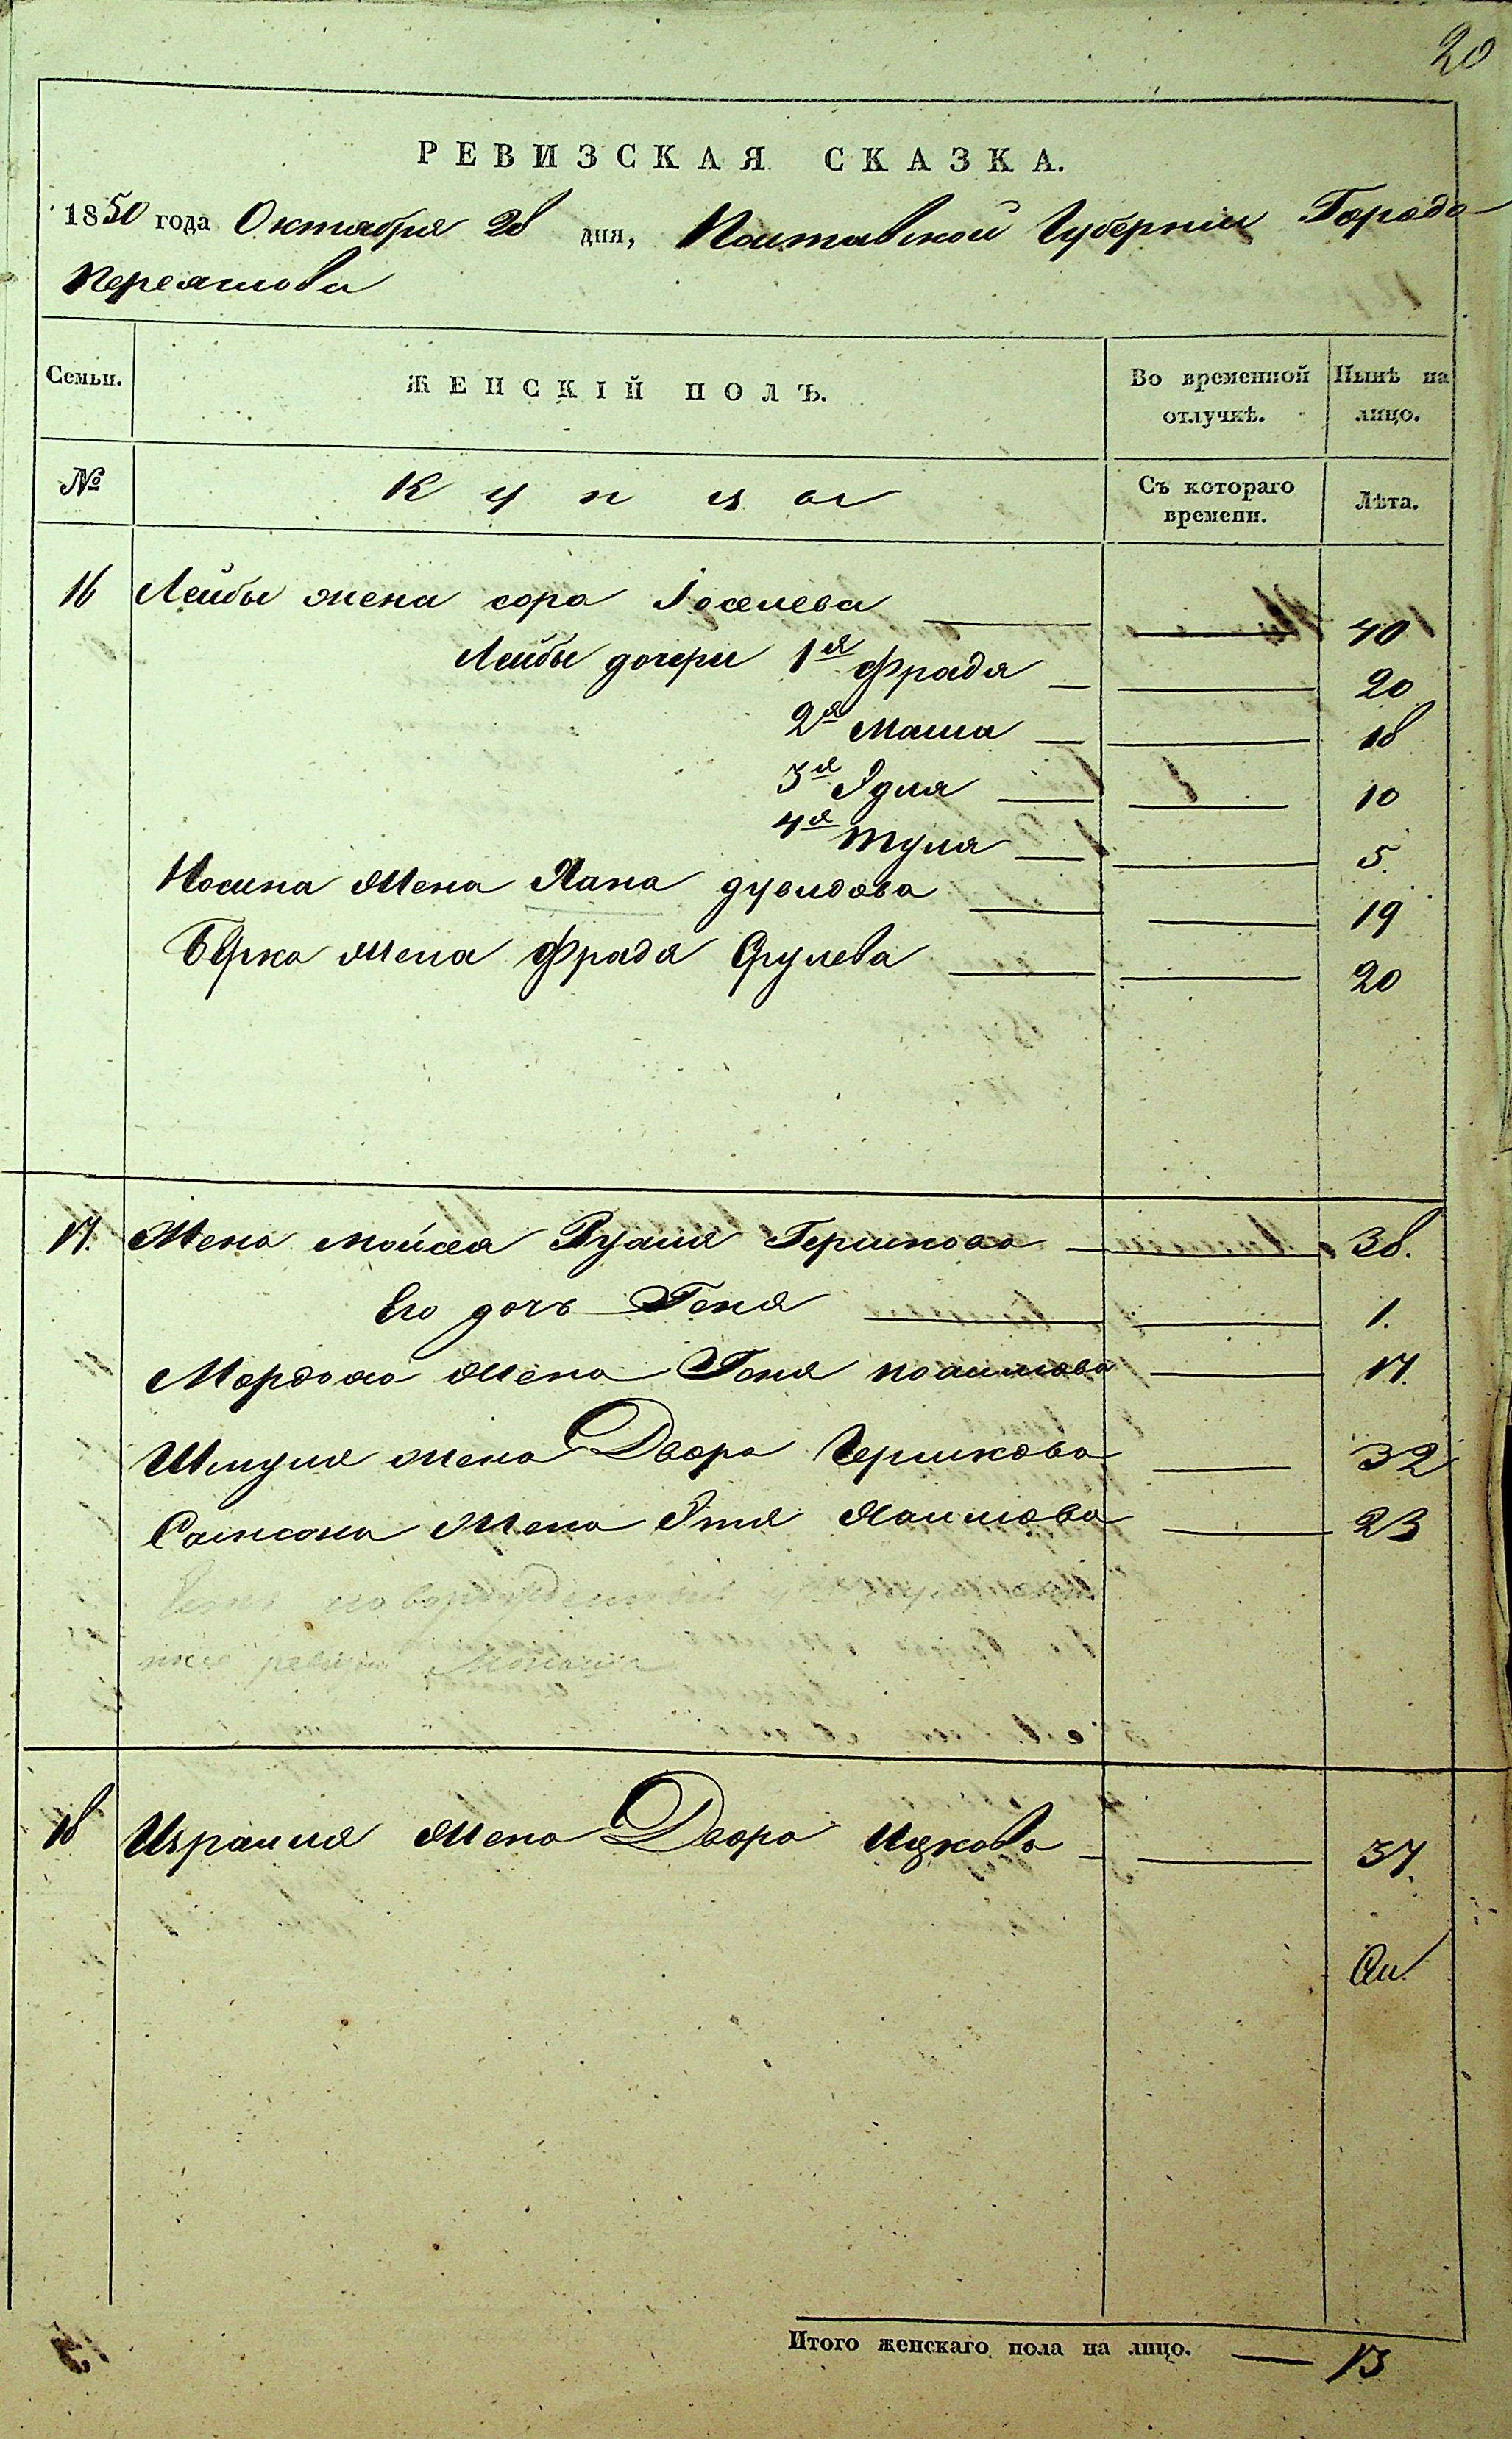 20
РЕВИЗСКАЯ СКАЗКА.
1850 года Октября 28 дня, Полтавской Губернiи Города
Переяслова
Семьи. ЖЕНСКIЙ ПОЛЪ. Во временной отлучкѣ. Нынѣ на лицо.
№ Купцы Съ котораго времени. Лѣта.
16 Лейбы жена сора Iоселева 40
Лейбы дочери 1я Фрадя 20
2я Маша 18
3я Эдля 10
4я Туля 5.
Носина жена Хана дувидова 19
Берка жена Фрадя Срулева 20
17. Жена мойсея Рухля Гершкова 38.
Его дочь Геня 1.
Мордохо жена Геня 17.
Шмуля жена Двора Гершкова 32
Самсона жена Этя Хаимова 23
18 Израиля жена Двора Ицкова 37.
Итого женскаго пола на лицо. 13